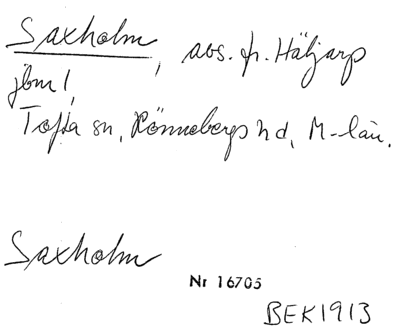 Saxholm, avs. fr. Häljarp
jbm 1,
Tofta sn, Rönnebergs hd, M-län.
Saxholm
Nr 16705
BEK1913